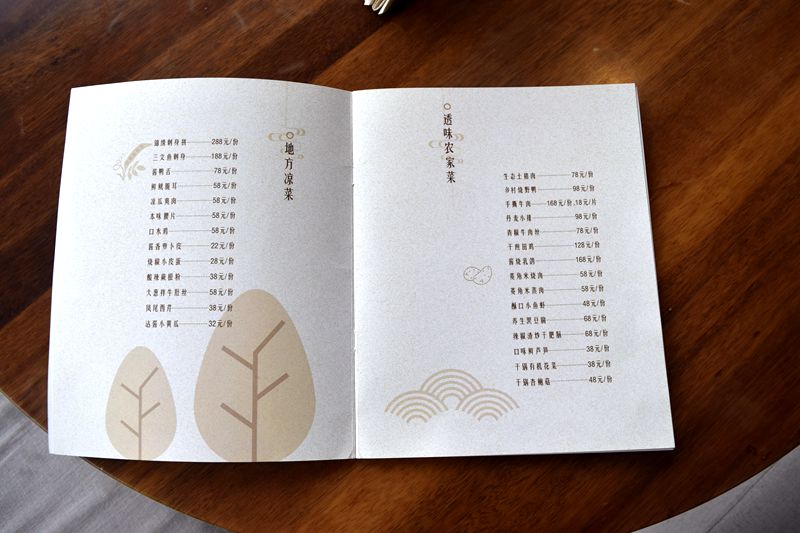 地方凉菜
锦绣刺身拼 288元/份
三文鱼刺身 188元/份
酱鸭舌 78元/份
鲜椒腰耳 58元/份
凉瓜爽肉 58元/份
本味腰片 58元/份
口水鸡 58元/份
酱香萝卜皮 22元/份
烧椒小皮蛋 28元/份
酸辣蕨根粉 38元/份
大葱拌牛肚丝 58元/份
凤尾西芹 38元/份
沾酱小黄瓜 32元/份
透味农家菜
生态土猪肉 78元/份
乡村烧野鸭 98元/份
手撕牛肉 168元/份,18元/片
丹麦小排 98元/份
青椒牛肉丝 78元/份
干煎田鸡 128元/份
酱烧乳鸽 168元/份
菱角米烧肉 58元/份
菱角米蒸肉 58元/份
酥口小鱼虾 48元/份
养生黑豆腐 68元/份
辣椒渣炒干肥肠 68元/份
口味鲜芦笋 38元/份
干锅有机花菜 38元/份
干锅杏鲍菇 48元/份